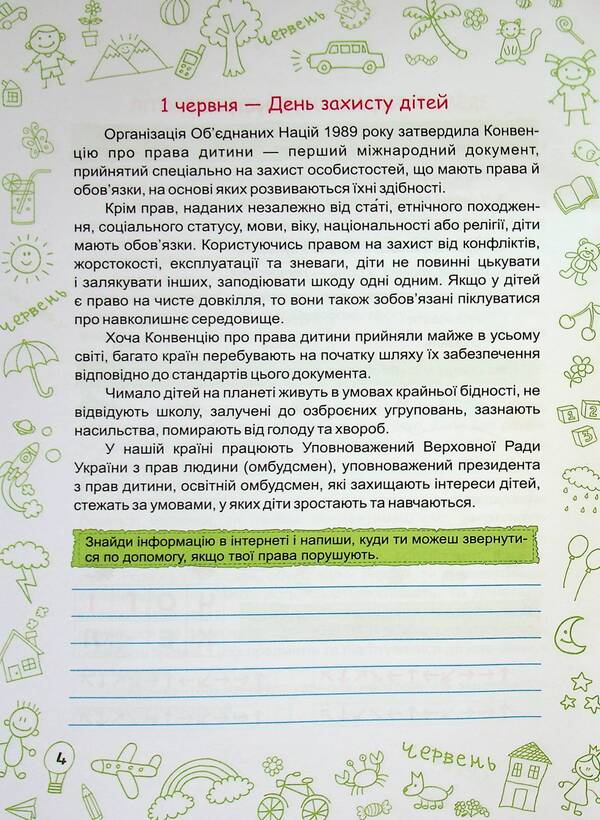 ЧЕРВЕНЬ
1 червня — День захисту дітей
Організація Об'єднаних Націй 1989 року затвердила Конвен-
цію про права дитини — перший міжнародний документ,
прийнятий спеціально на захист особистостей, що мають права й
обов'язки, на основі яких розвиваються їхні здібності.
Крім прав, наданих незалежно від ста́ті, етнічного походжен-
ня, соціального статусу, мови, віку, національності або релігії, діти
мають обов'язки. Користуючись правом на захист від конфліктів,
жорстокості, експлуатації та зневаги, діти не повинні цькувати
і залякувати інших, заподіювати шкоду одні одним. Якщо у дітей
є право на чисте довкілля, то вони також зобов'язані піклуватися
про навколишнє середовище.
Хоча Конвенцію про права дитини прийняли майже в усьому
світі, багато країн перебувають на початку шляху їх забезпечення
відповідно до стандартів цього документа.
Чимало дітей на планеті живуть в умовах крайньої бідності, не
відвідують школу, залучені до озброєних угруповань, зазнають
насильства, помирають від голоду та хвороб.
У нашій країні працюють Уповноважений Верховної Ради
України з прав людини (омбудсмен), уповноважений президента
з прав дитини, освітній омбудсмен, які захищають інтереси дітей,
стежать за умовами, у яких діти зростають та навчаються.
Знайди інформацію в інтернеті і напиши, куди ти можеш звернути-
ся по допомогу, якщо твої права порушують.
ЧЕРВЕНЬ
1
2
3
4
ЧЕРВЕНЬ